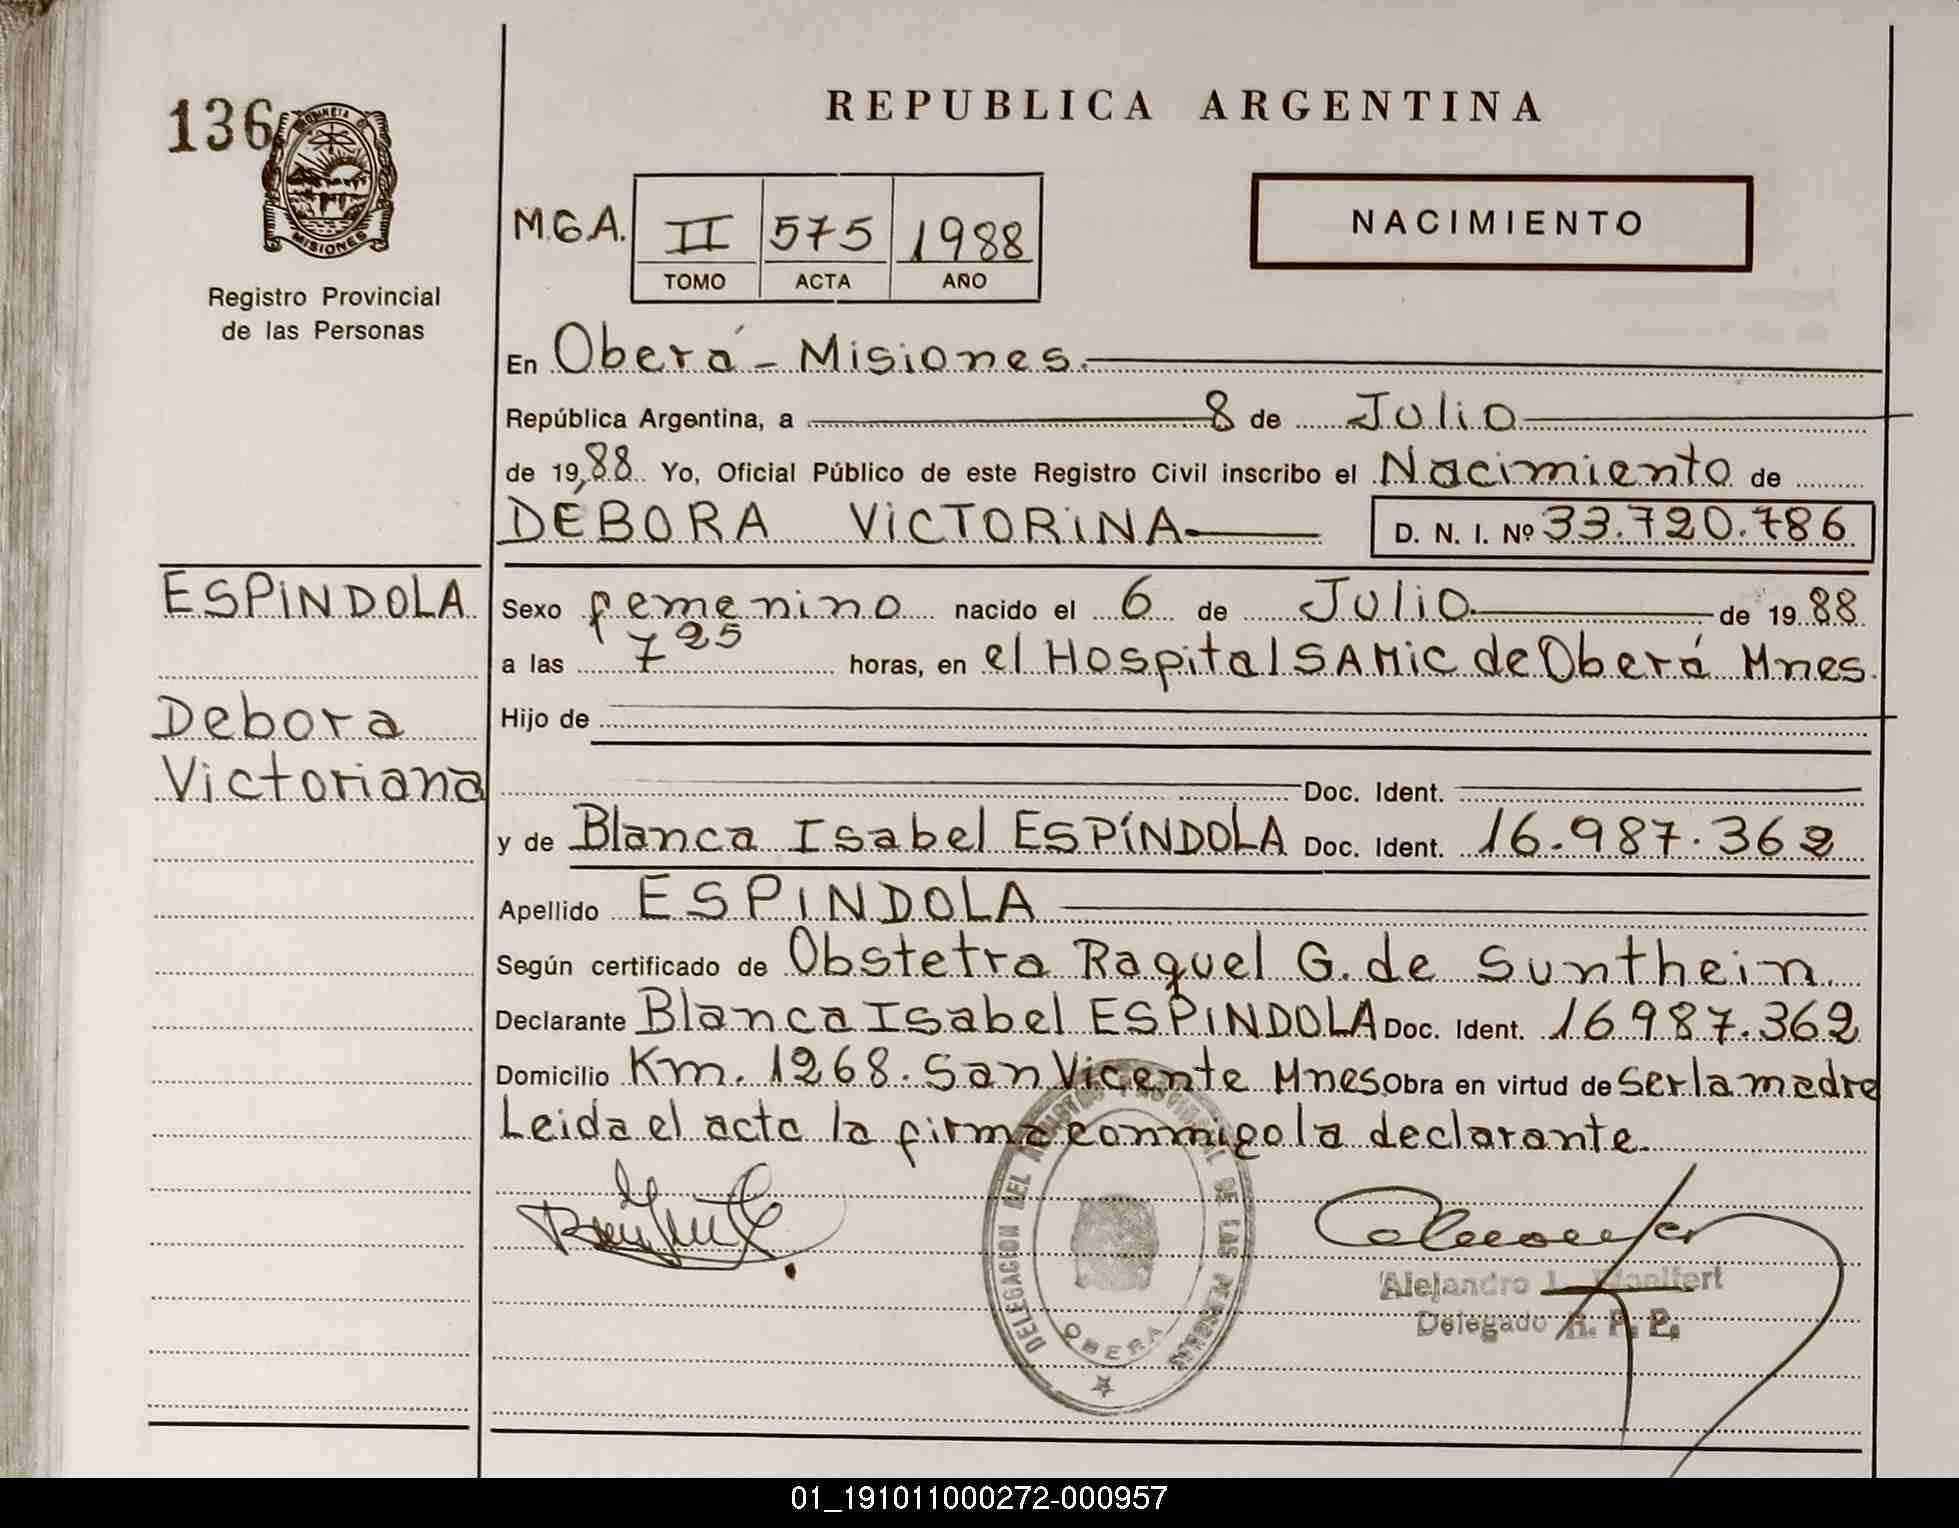 136
PROVINCIA D
MISIONES
Registro Provincial
de las Personas
REPUBLICA ARGENTINA
M.G.A. II 575 1988
TOMO ACTA AÑO
NACIMIENTO
En Oberá - Misiones.
República Argentina, a 8 de Julio
de 1988 Yo, Oficial Público de este Registro Civil inscribo el Nacimiento de
DÉBORA VICTORINA D. N. I. Nº 33.720.786
ESPINDOLA
Debora
Victoriana
Sexo femenino nacido el 6 de Julio de 1988
a las 7 25 horas, en el Hospital SAMIC de Oberá Mnes.
Hijo de
Doc. Ident.
y de Blanca Isabel ESPÍNDOLA Doc. Ident. 16.987.362
Apellido ESPINDOLA
Según certificado de Obstetra Raquel G. de Sunthein.
Declarante Blanca Isabel ESPINDOLA Doc. Ident. 16987.362
Domicilio Km. 1268. San Vicente Mnes. Obra en virtud de ser la madre
Leida el acta la firma conmigo la declarante.
DELEGACION DEL REGISTRO PROVINCIAL DE LAS PERSONAS
OBERA
Alejandro L.
Delegado R. P. P.
01_191011000272-000957